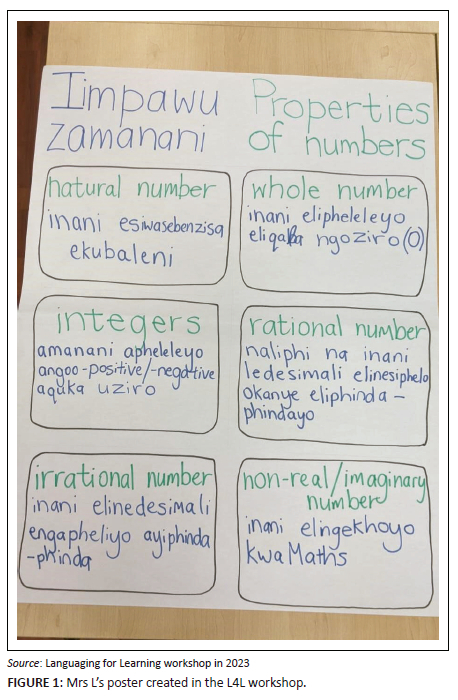 Iimpawu
zamanani
Properties
of numbers
natural number
inani esiwasebenzisa
ekubaleni
whole number
inani elipheleleyo
ngoziro (0)
integers
amanani apheleleyo
angoo-positive/-negative
aquka uziro
rational number
naliphi na inani
ledesimali elinesiphelo
okanye eliphinda-
phindayo
irrational number
inani elinedesimali
engapheliyo ayiphinda
-phinda
non-real/imaginary
number
inani elingekhoyo
kwaMaths
Source: Languaging for Learning workshop in 2023
FIGURE 1: Mrs L's poster created in the L4L workshop.